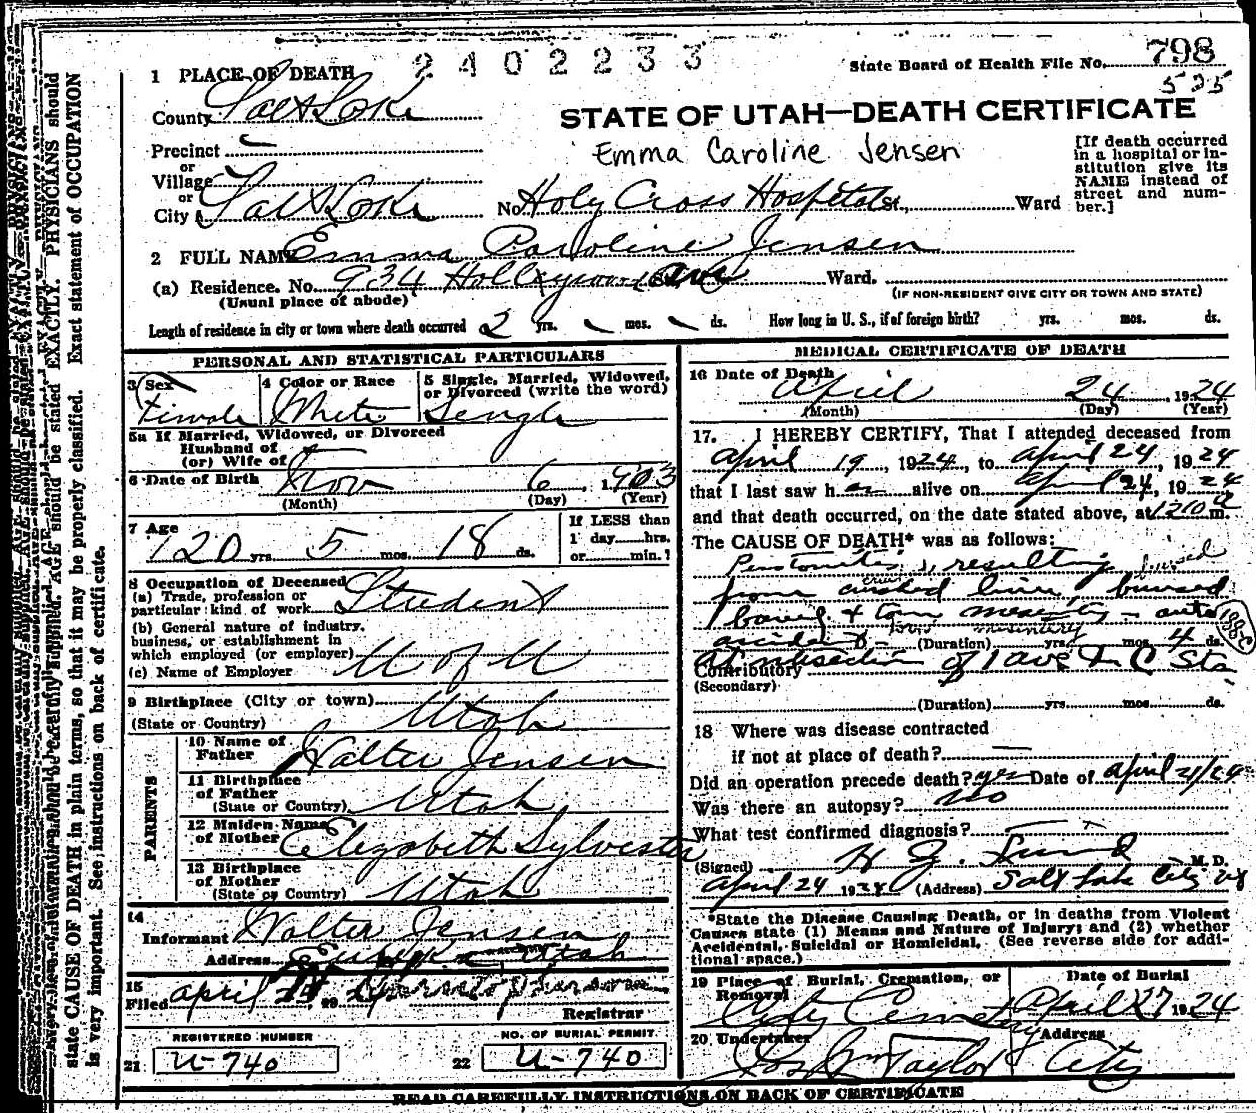 2402233
State Board of Health File No. 798
525
1 PLACE OF DEATH
County Salt Lake
STATE OF UTAH—DEATH CERTIFICATE
Emma Caroline Jensen
Precinct
or
Village
or
City Salt Lake No. Holy Cross Hospital St., Ward
[If death occurred
in a hospital or in-
stitution give its
NAME instead of
street and num-
ber.]
2 FULL NAME Emma Caroline Jensen
(a) Residence. No. 934 Hollywood Ave Ward.
(Usual place of abode) (IF NON-RESIDENT GIVE CITY OR TOWN AND STATE)
Length of residence in city or town where death occurred 2 yrs. mos. ds. How long in U. S., if of foreign birth? yrs. mos. ds.
PERSONAL AND STATISTICAL PARTICULARS
3 Sex 4 Color or Race 5 Single, Married, Widowed,
or Divorced (write the word)
Female White Single
5a If Married, Widowed, or Divorced
Husband of
(or) Wife of
6 Date of Birth Nov 6, 1903
(Month) (Day) (Year)
7 Age 20 yrs. 5 mos. 18 ds.
If LESS than
1 day hrs.
or min.?
8 Occupation of Deceased
(a) Trade, profession or
particular kind of work Student
(b) General nature of industry,
business, or establishment in
which employed (or employer)
(c) Name of Employer U of U
9 Birthplace (City or town)
(State or Country) Utah
PARENTS
10 Name of
Father Walter Jensen
11 Birthplace
of Father
(State or Country) Utah
12 Maiden Name
of Mother Elizabeth Sylvester
13 Birthplace
of Mother
(State or Country) Utah
14
Informant Walter Jensen
Address Utah
15
Filed April
Registrar
REGISTERED NUMBER NO. OF BURIAL PERMIT
21 U-740 22 U-740
MEDICAL CERTIFICATE OF DEATH
16 Date of Death
April 24 1924
(Month) (Day) (Year)
17. I HEREBY CERTIFY, That I attended deceased from
April 19, 1924, to April 24, 1924
that I last saw h alive on April 24, 1924
and that death occurred, on the date stated above, at 1210 m.
The CAUSE OF DEATH* was as follows:
Peritonitis, resulting
from crushed liver, bruised
bowel & torn mesentery - auto
accident
torn mesentery
188c
(Duration) yrs. mos. 4 ds.
At intersection of 1 ave & C Sts
Contributory
(Secondary)
(Duration) yrs. mos. ds.
18 Where was disease contracted
if not at place of death?
Did an operation precede death? yes Date of April 21/24
Was there an autopsy? no
What test confirmed diagnosis?
(Signed) M. D.
April 24 192 (Address) Salt Lake City
*State the Disease Causing Death, or in deaths from Violent
Causes state (1) Means and Nature of Injury; and (2) whether
Accidental, Suicidal or Homicidal. (See reverse side for addi-
tional space.)
19 Place of Burial, Cremation, or
Removal
City Cemetery
Date of Burial
April 27 1924
20 Undertaker
Jos Wm Taylor
Address
City
READ CAREFULLY INSTRUCTIONS ON BACK OF CERTIFICATE
state CAUSE OF DEATH in plain terms, so that it may be properly classified. Exact statement of OCCUPATION
is very important. See instructions on back of certificate.